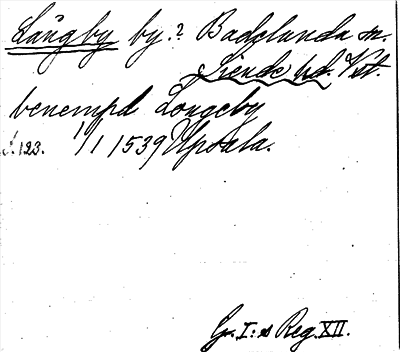 Långby by.? Badelunda sn.
Siende hd. Vst.
benempd Longeby
s. 123. 1/1 1539 Upsala.
G. I:s Reg. XII.